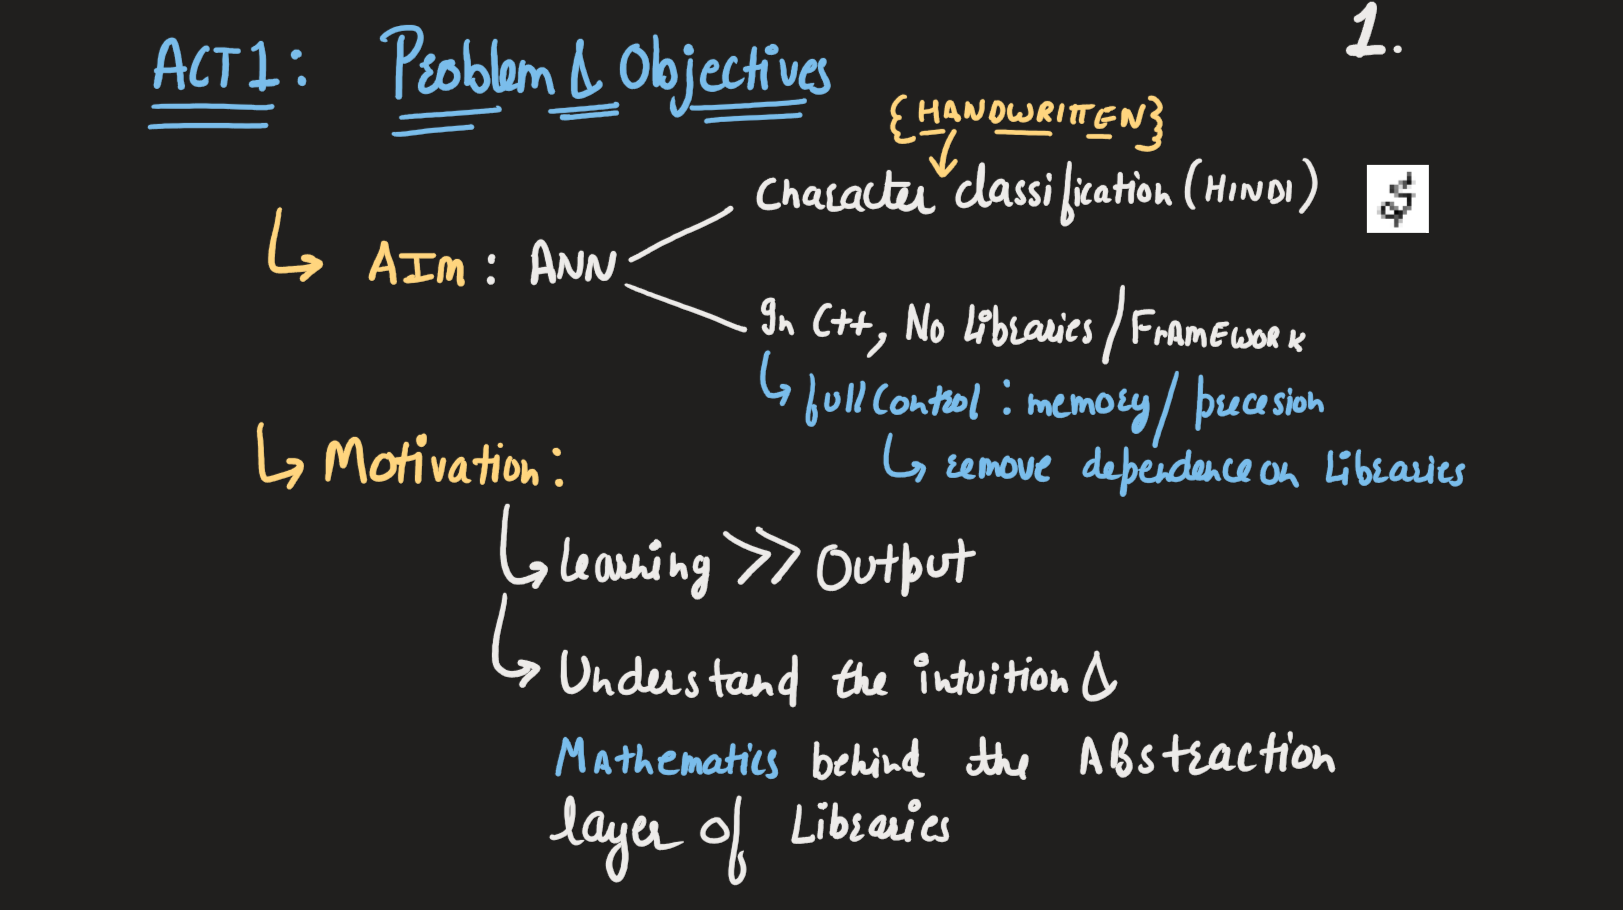 1.
ACT1: Problem & Objectives
{HANDWRITTEN}
Character classification (HINDI)
AIm: ANN
In C++, No Libraries/FrAMEWORK
full Control: memory/precesion
remove dependence on Libraries
Motivation:
Learning >> Output
Understand the intuition &
Mathematics behind the ABstraction
layer of Libraries